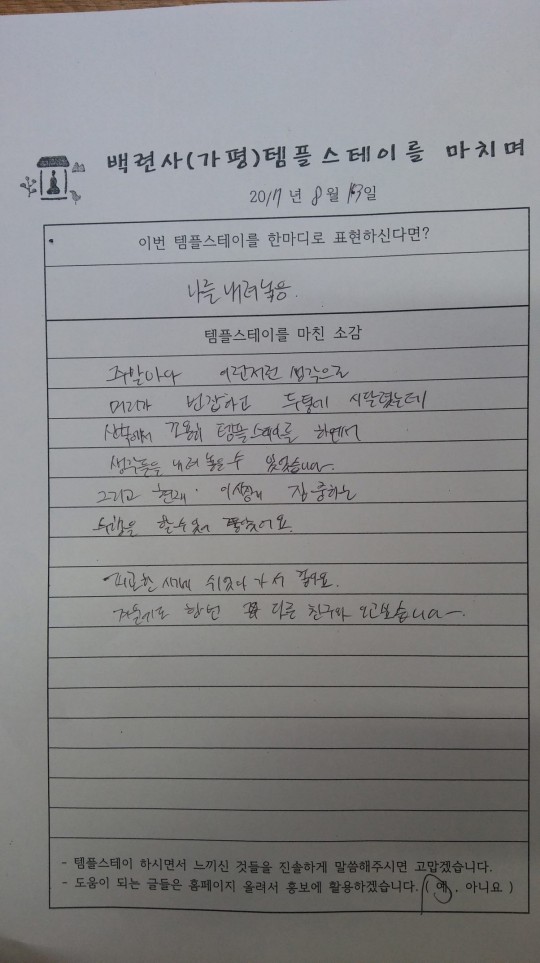 백련사(가평)템플스테이를 마치며
2017년 8월 13일
이번 템플스테이를 한마디로 표현하신다면?
나를 내려놓음.
템플스테이를 마친 소감
주말마다 이런저런 생각으로
머리가 번잡하고 두통에 시달렸는데
산속에서 조용히 템플스테이를 하면서
생각들을 내려 놓을 수 있었습니다.
그리고 현재
수행을 할 수 있어 좋았어요.
피곤한 쉬었다 가서 좋아요.
겨울에도 한번 꼭 다른 친구와 오고싶습니다.
- 템플스테이 하시면서 느끼신 것들을 진솔하게 말씀해주시면 고맙겠습니다.
- 도움이 되는 글들은 홈페이지 올려서 홍보에 활용하겠습니다. ( 예 . 아니요 )